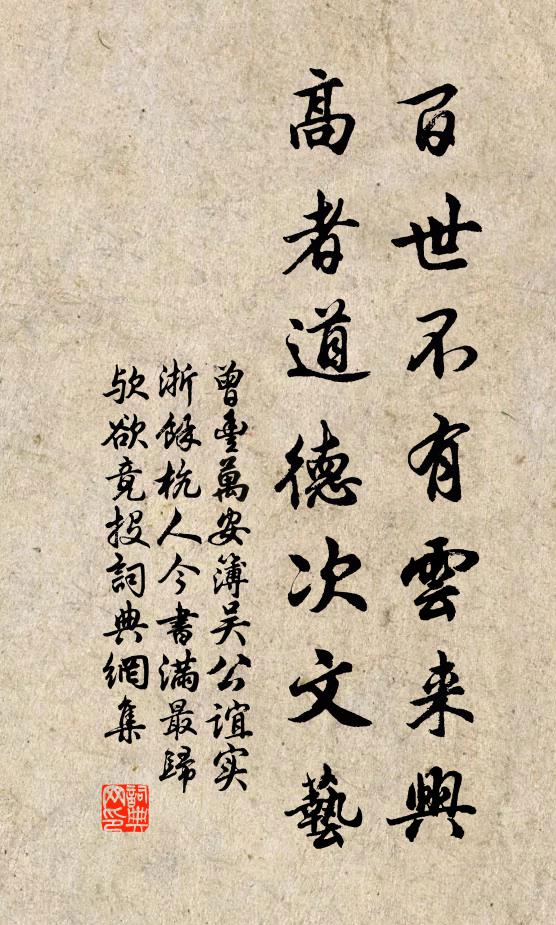 百世不有雲来興
高者道德次文藝
曾豊萬安簿吴公誼实
浙餘杭人今書滿最歸
欤欲竟投詞典網集
詞典
网印